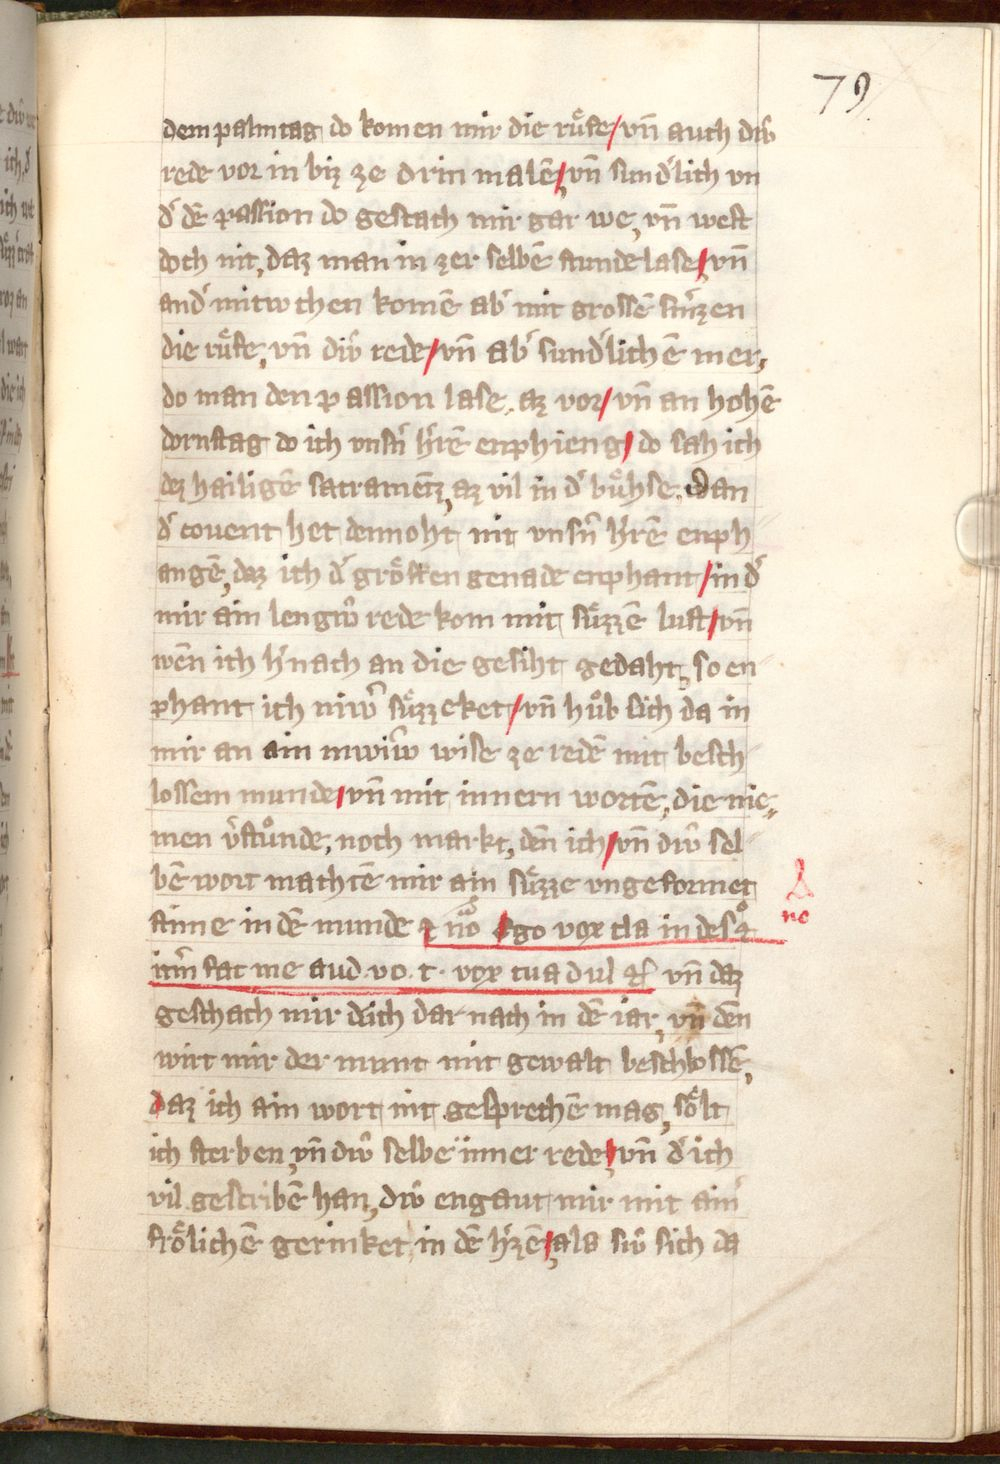 79
dem palmtag do komen mir die růfe / vn̄ auch diw̑
rede vor in biz ze drin malē / vn̄ sund̾lich vn
d̾ dē passion do geschach mir gar we, vn̄ west
doch nit, daz man in zer selbē stunde lase / vn̄
and̾ mitwchen komē ab̾ mit grossē smͤzen
die růfe, vn̄ diw̑ rede / vn̄ ab̾ sund̾lichē mer,
do man den passion lase. az vor / vn̄ an hohē
dornstag do ich vnsn̾ h̾rē enphieng / do sah ich
dez hailigē sacramētz, az vil in d̾ bůhse. Wan
d̾ couent het dennoht nit vnsn̾ h̾rē enph
angē, daz ich d̾ grősten genade enphant / in d̾
mir ain lengiw̑ rede kom mit sůzzē lust / vn̄
wēn ich h̾nach an die gesiht gedaht, so en
phant ich niw̑ sůzzeket / vn̄ hůb sich da in
mir an ain inwiw̑ wise ze redē mit besch
lossem munde / vn̄ mit innern wortē, die nie
men v̾stůnde, noch markt, dēn ich / vn̄ diw̑ sel
bē wort machtē mir ain sůzze vngeformet
stinne in dē munde
no
vn̄ daz
geschach mir dich dar nach in dē iar, vn̄ dēn
wirt mir der munt mit gewalt beschlossē,
daz ich ain wort nit gesprechē mag, sőlt
ich sterben, vn̄ diw̑ selbe inner rede / vn̄ d̾ ich
vil gescribē han, diw̑ engaut mir mit ain̾
frőlichē gerinket in dē h̾zē / als siw̑ sich da